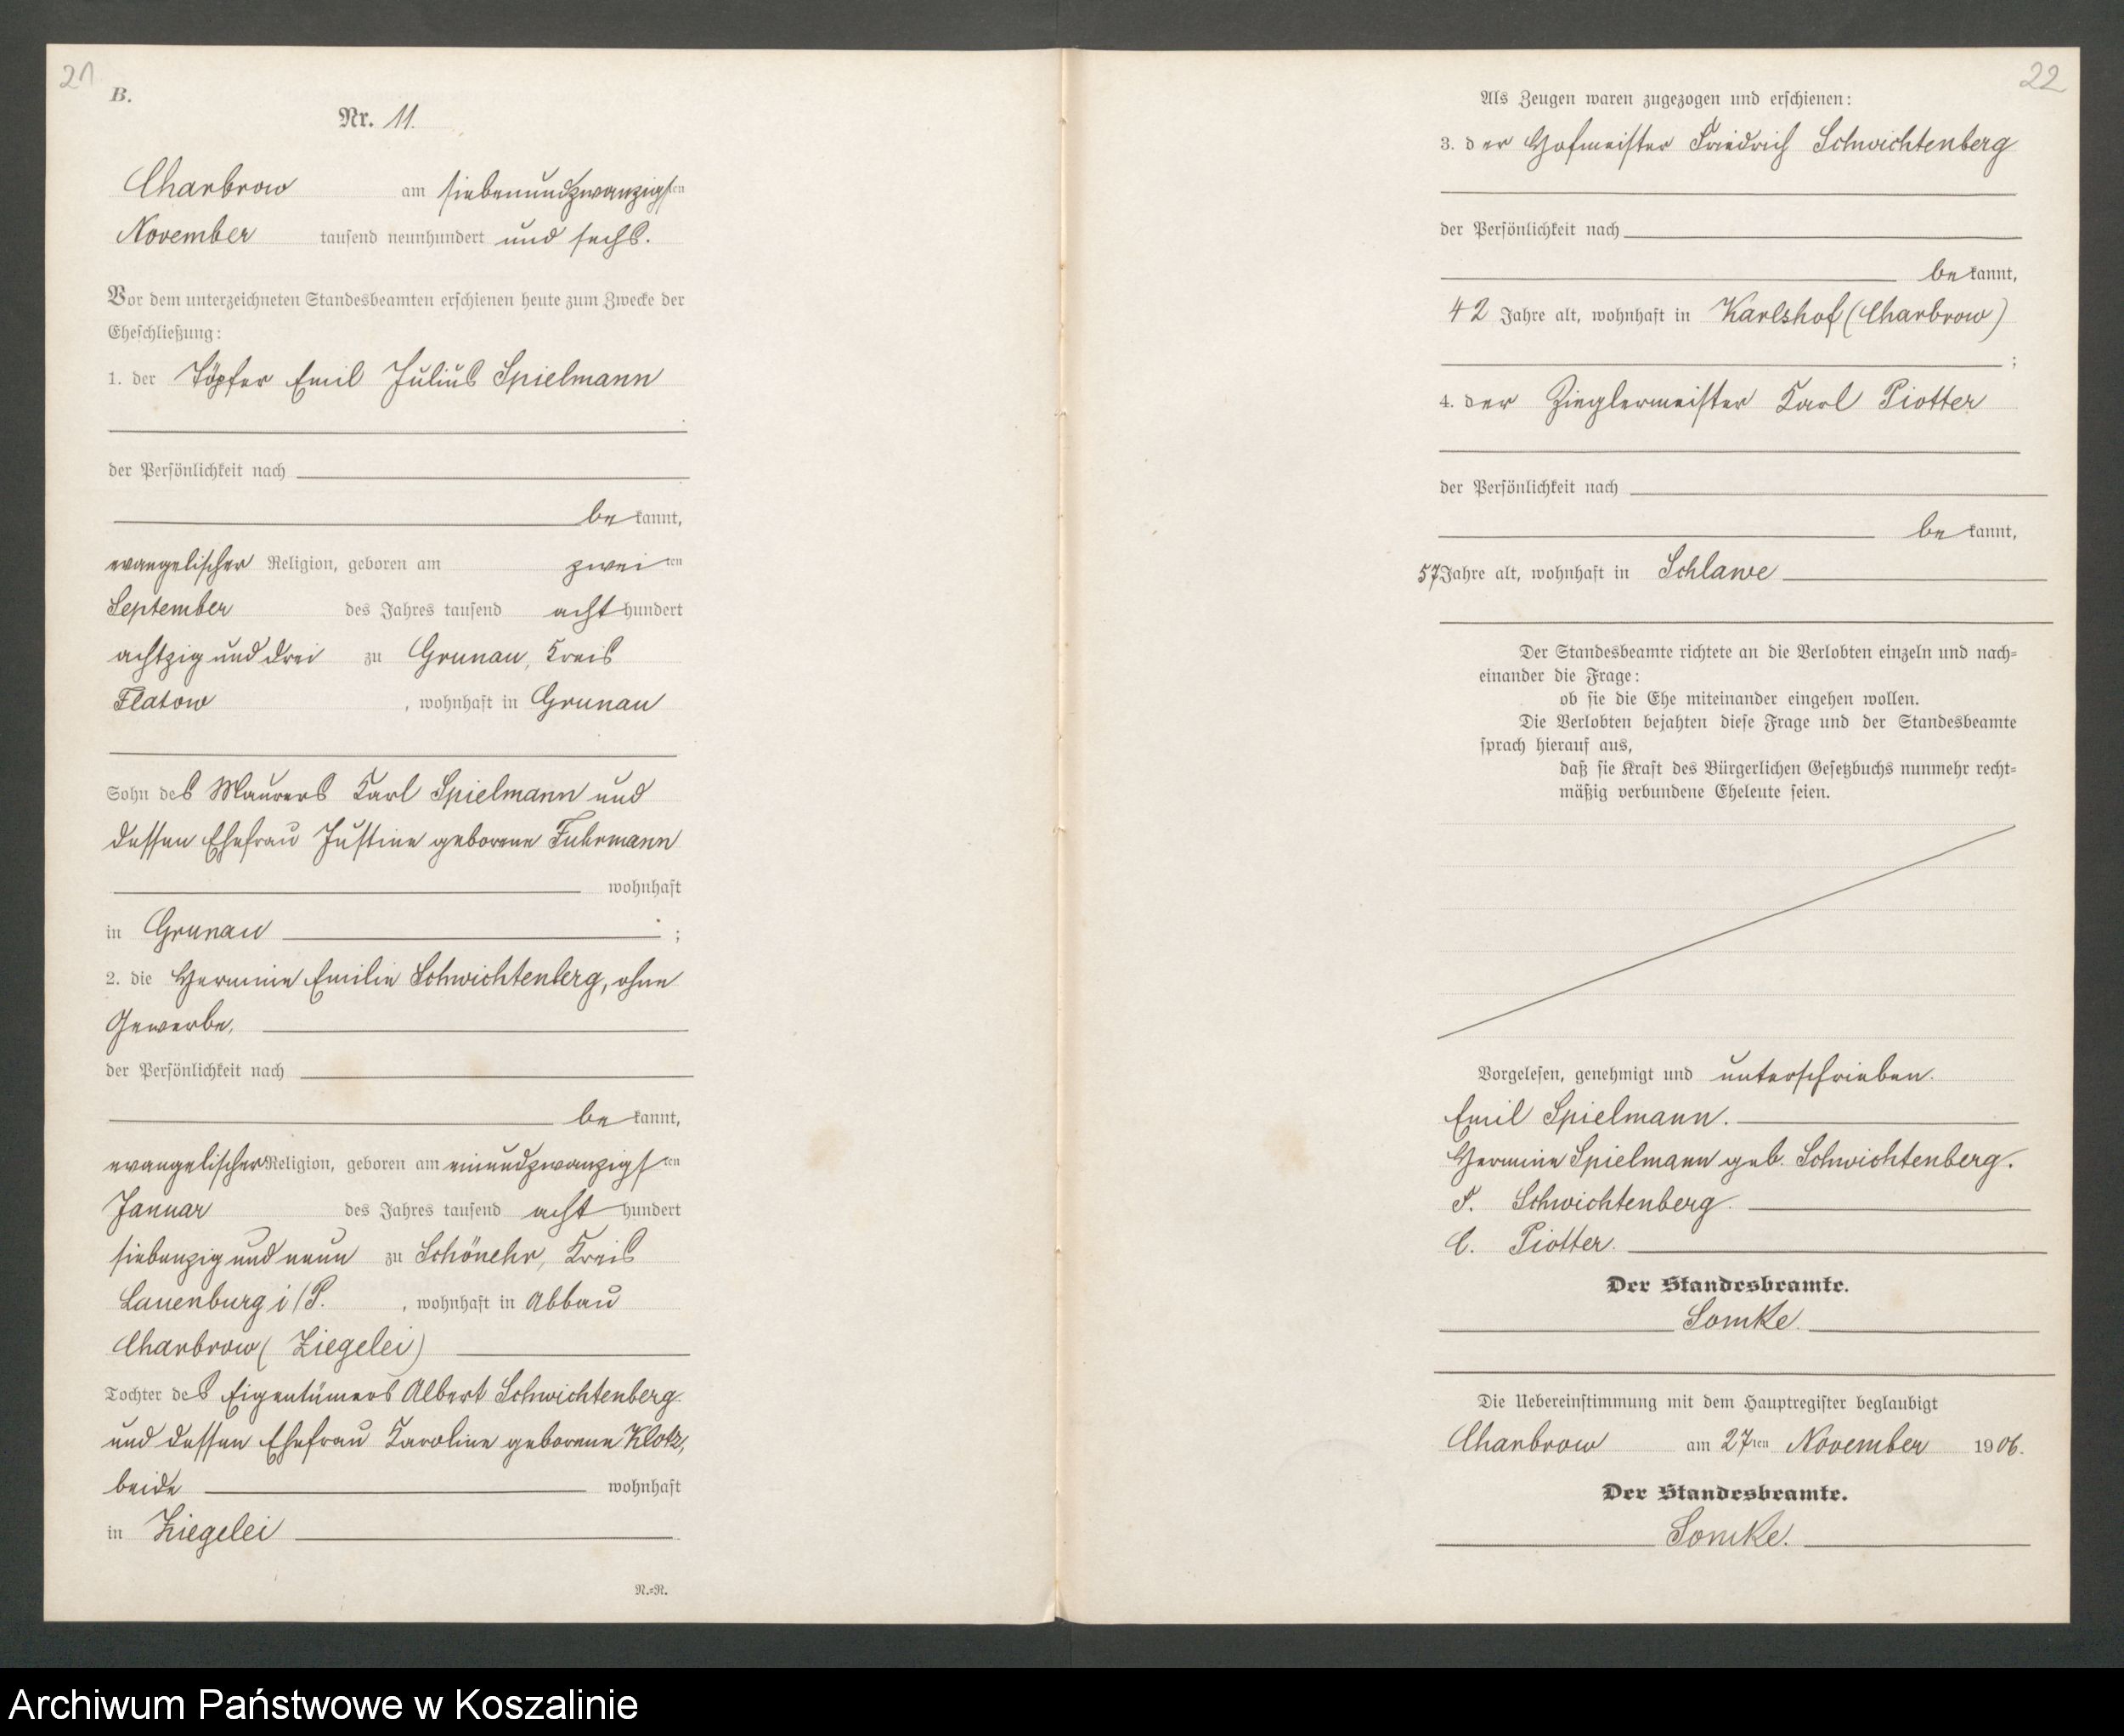 21
B.
Nr. 11.
Charbrow am siebenundzwanzigsten
November tausend neunhundert und sechs.
Vor dem unterzeichneten Standesbeamten erschienen heute zum Zwecke der
Eheschließung:
1. der Töpfer Emil Julius Spielmann
der Persönlichkeit nach
be kannt,
evangelischer Religion, geboren am zwei ten
September des Jahres tausend acht hundert
achtzig und drei zu Grunau, Kreis
Flatow , wohnhaft in Grunau
Sohn des Maurers Karl Spielmann und
dessen Ehefrau Justine geborene Fuhrmann
wohnhaft
in Grunau ;
2. die Hermine Emilie Schwichtenberg, ohne
Gewerbe,
der Persönlichkeit nach
be kannt,
evangelischer Religion, geboren am einundzwanzigsten
Januar des Jahres tausend acht hundert
siebenzig und neun zu Schönehr, Kreis
Lauenburg i/P. , wohnhaft in Abbau
Charbrow (Ziegelei)
Tochter des Eigentümers Albert Schwichtenberg
und dessen Ehefrau Karoline geborene Klotz,
beide wohnhaft
in Ziegelei
N.=R.
22
Als Zeugen waren zugezogen und erschienen:
3. der Hofmeister Friedrich Schwichtenberg
der Persönlichkeit nach
be kannt,
42 Jahre alt, wohnhaft in Karlshof (Charbrow)
;
4. der Zieglermeister Karl Piotter
der Persönlichkeit nach
be kannt,
57 Jahre alt, wohnhaft in Schlawe
Der Standesbeamte richtete an die Verlobten einzeln und nach=
einander die Frage:
ob sie die Ehe miteinander eingehen wollen.
Die Verlobten bejahten diese Frage und der Standesbeamte
sprach hierauf aus,
daß sie Kraft des Bürgerlichen Gesetzbuchs nunmehr recht=
mäßig verbundene Eheleute seien.
Vorgelesen, genehmigt und unterschrieben.
Emil Spielmann.
Hermine Spielmann geb. Schwichtenberg.
F. Schwichtenberg.
C. Piotter.
Der Standesbeamte.
Somke.
Die Uebereinstimmung mit dem Hauptregister beglaubigt
Charbrow am 27ten November 1906.
Der Standesbeamte.
Somke.
Archiwum Państwowe w Koszalinie